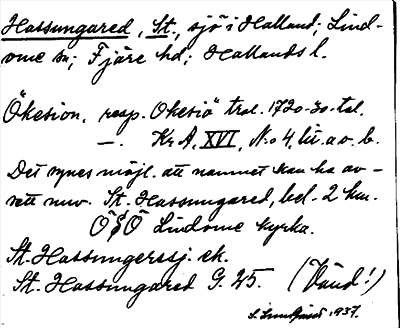 Hassungared, St., sjö i Halland; Lind-
ome sn; Fjäre hd; Hallands l.
Ökesion, resp. Okesiö trol. 1720-30-tal.
—. Kr A, XVI, No 4, lit. a o. b.
Det synes möjl. att namnet kan ha av-
sett nuv. St. Hassungared, bel. 2 km.
OSO Lindome kyrka.
St. Hassungerssj. ek.
St. Hassungared G. 25. (Vänd!)
1937.